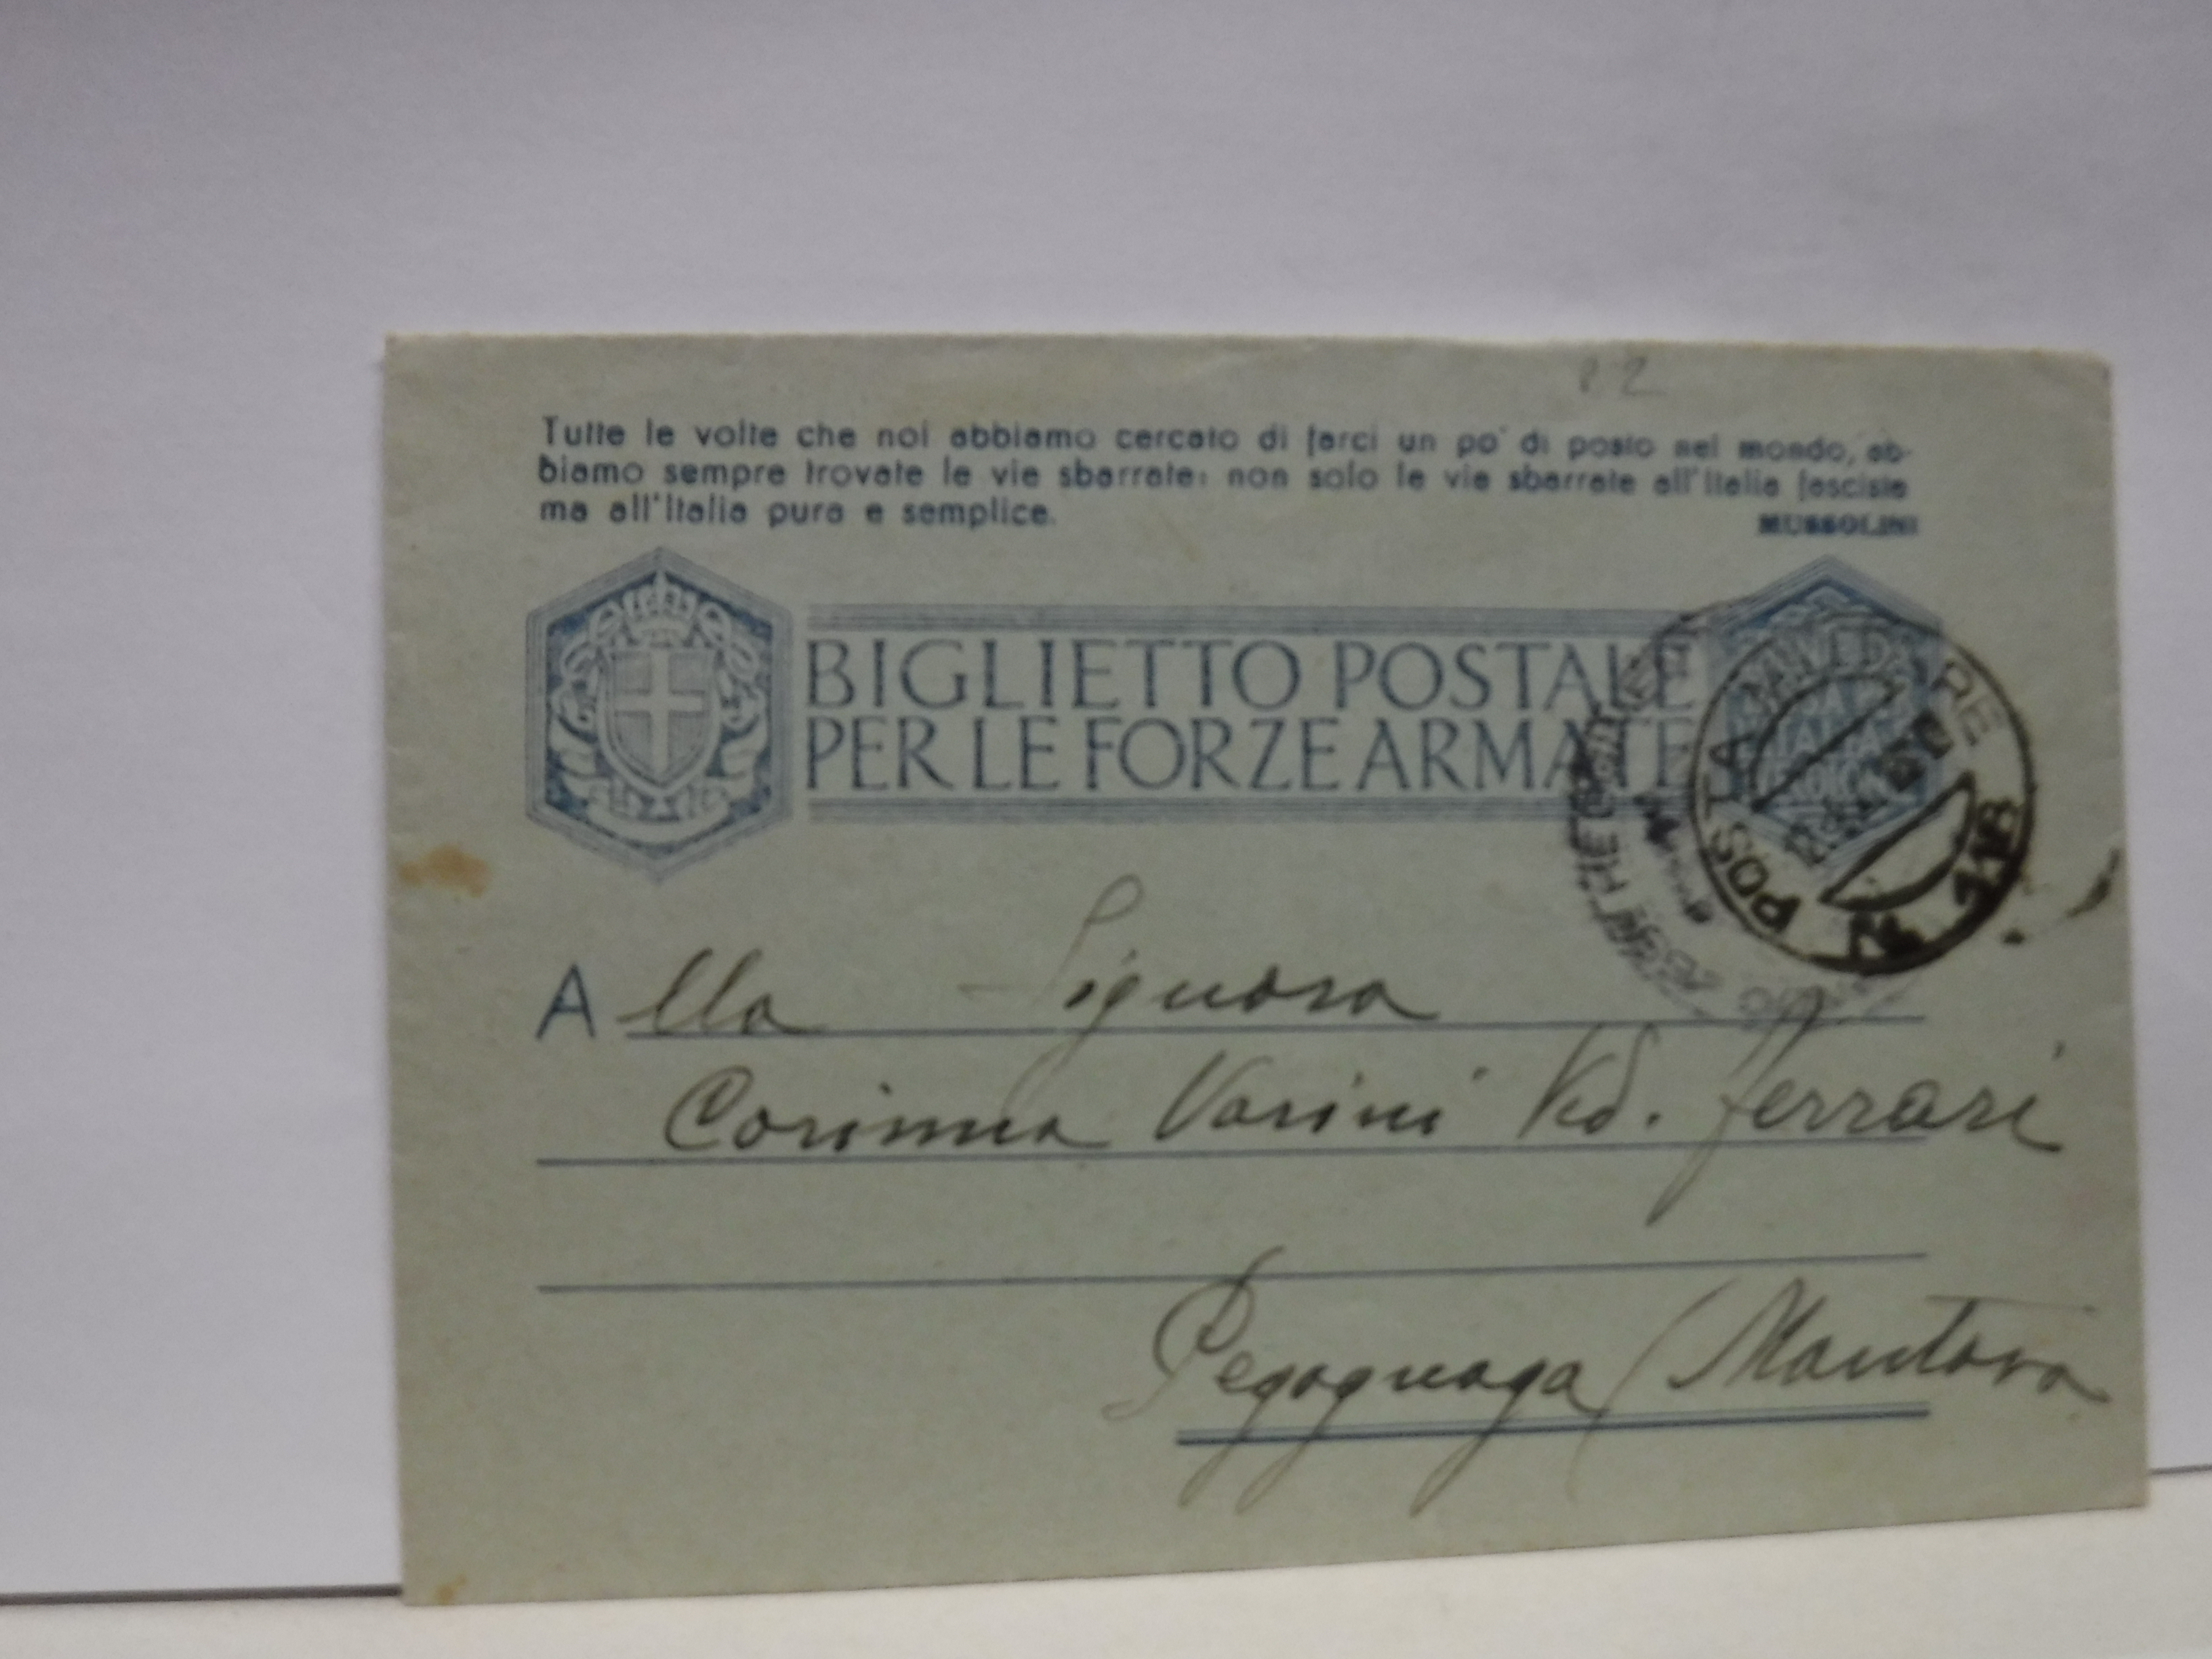 Tutte le volte che noi abbiamo cercato di farci un po' di posto nel mondo, ab-
biamo sempre trovate le vie sbarrate: non solo le vie sbarrate all'Italia fascista
ma all'Italia pura e semplice.
MUSSOLINI
BIGLIETTO POSTALE
PER LE FORZE ARMATE
POSTA MILITARE
Alla Signora
Corinna Varini Vd. Ferrari
Pegognaga (Mantova